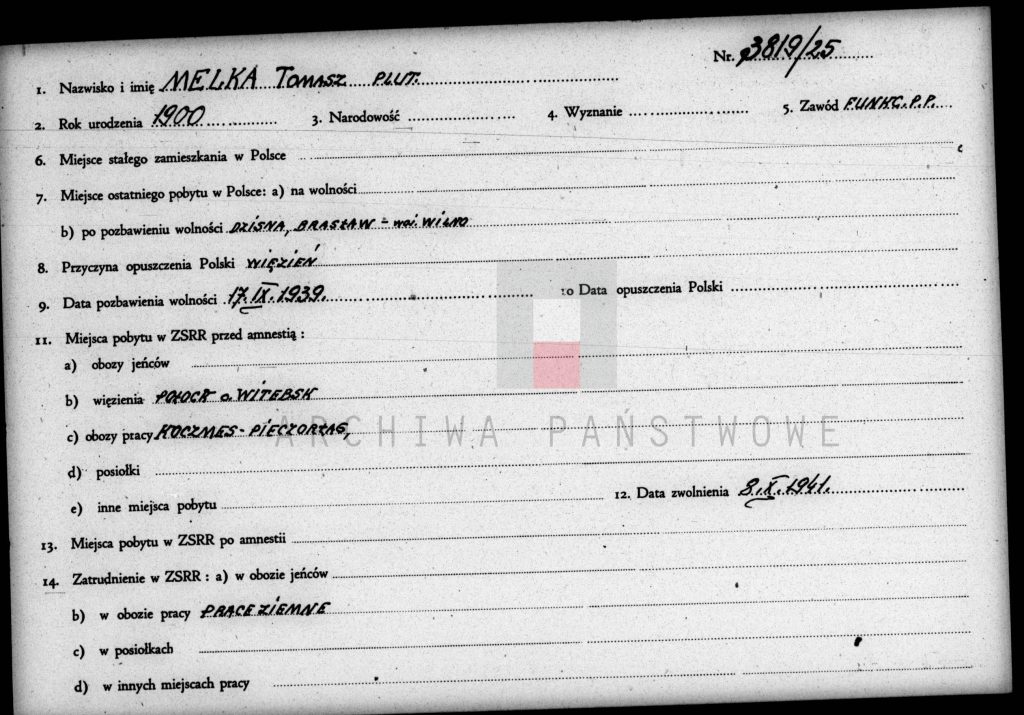 Nr. 3819/25
1. Nazwisko i imię MELKA TOMASZ PLUT.
2. Rok urodzenia 1900 3. Narodowość 4. Wyznanie 5. Zawód FUNKC. P.P.
6. Miejsce stałego zamieszkania w Polsce
7. Miejsce ostatniego pobytu w Polsce: a) na wolności
b) po pozbawieniu wolności DZISNA, BRASŁAW - woj. WILNO
8. Przyczyna opuszczenia Polski WIĘZIEŃ
9. Data pozbawienia wolności 17.IX.1939. 10 Data opuszczenia Polski
11. Miejsca pobytu w ZSRR przed amnestią :
a) obozy jeńców
b) więzienia POŁOCK o. WITEBSK
c) obozy pracy KOCZMES - PIECZORŁAG,
ARCHIWA PAŃSTWOWE
d) posiołki
e) inne miejsca pobytu 12. Data zwolnienia 8.X.1941.
13. Miejsca pobytu w ZSRR po amnestii
14. Zatrudnienie w ZSRR : a) w obozie jeńców
b) w obozie pracy PRACE ZIEMNE
c) w posiołkach
d) w innych miejscach pracy